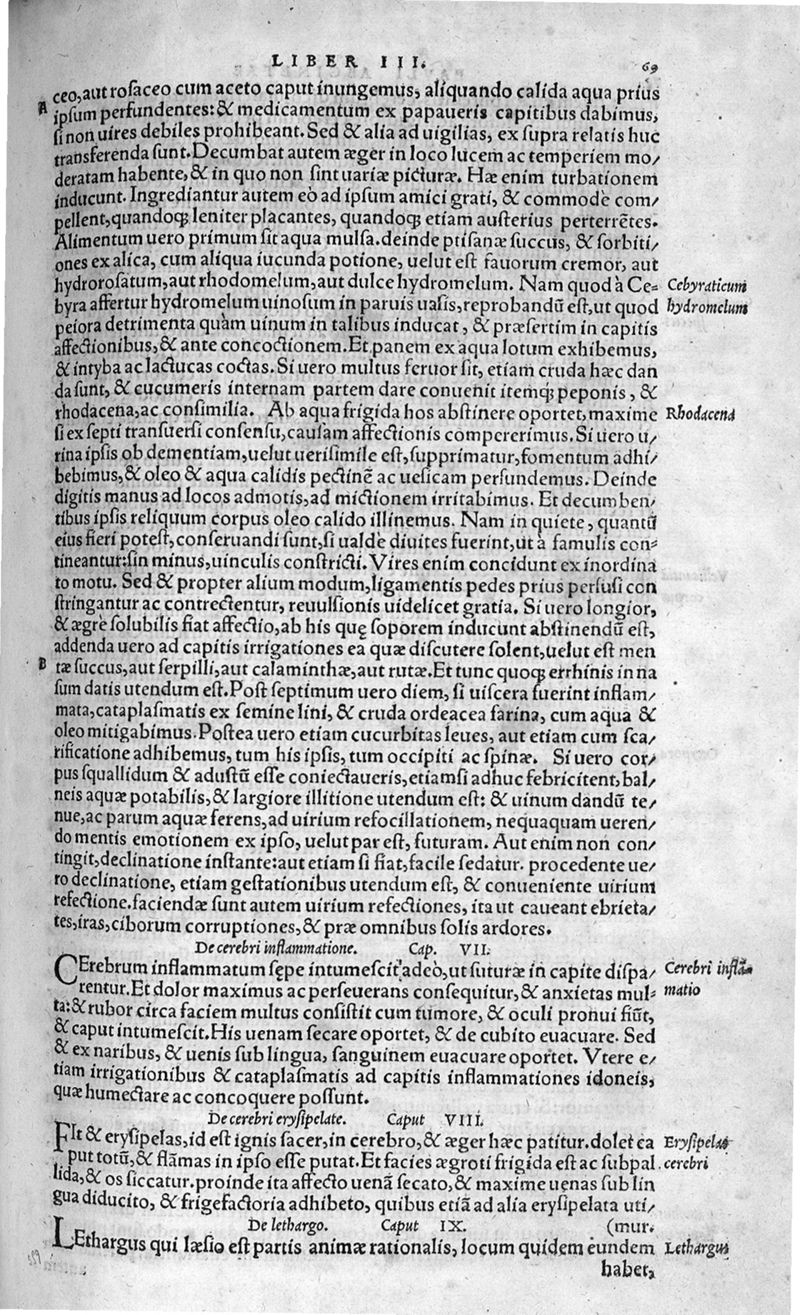 LIBER III. 69
ceo, aut rosaceo cum aceto caput inungemus, aliquando calida aqua prius
A ipsum perfundentes: & medicamentum ex papaueris capitibus dabimus,
si non uires debiles prohibeant. Sed & alia ad uigilias, ex supra relatis huc
transferenda sunt. Decumbat autem æger in loco lucem ac temperiem mo/
deratam habente, & in quo non sint uariæ picturæ. Hæ enim turbationem
inducunt. Ingrediantur autem eò ad ipsum amici grati, & commode com/
pellent, quandoq; leniter placantes, quandoq; etiam austerius perterrētes.
Alimentum uero primum sit aqua mulsa. deinde ptisanæ succus, & sorbiti/
ones ex alica, cum aliqua iucunda potione, uelut est fauorum cremor, aut
hydrorosatum, aut rhodomelum, aut dulce hydromelum. Nam quod à Ce= Cebyraticum
byra affertur hydromelum uinosum in paruis uasis, reprobandū est, ut quod hydromelum
peiora detrimenta quàm uinum in talibus inducat, & præsertim in capitis
affectionibus, & ante concoctionem. Et panem ex aqua lotum exhibemus,
& intyba ac lactucas coctas. Si uero multus feruor sit, etiam cruda hæc dan
da sunt, & cucumeris internam partem dare conuenit itemq; peponis, &
rhodacena, ac consimilia. Ab aqua frigida hos abstinere oportet, maxime Rhodacena
si ex septi transuersi consensu, causam affectionis compererimus. Si uero u/
rina ipsis ob dementiam, uelut uerisimile est, supprimatur, fomentum adhi/
bebimus, & oleo & aqua calidis pectinē ac uesicam perfundemus. Deinde
digitis manus ad locos admotis, ad mictionem irritabimus. Et decumben/
tibus ipsis reliquum corpus oleo calido illinemus. Nam in quiete, quantū
eius fieri potest, conseruandi sunt, si ualde diuites fuerint, ut à famulis con=
tineantur: sin minus, uinculis constricti. Vires enim concidunt ex inordina
to motu. Sed & propter alium modum, ligamentis pedes prius perfusi con
stringantur ac contrectentur, reuulsionis uidelicet gratia. Si uero longior,
& ægre solubilis fiat affectio, ab his quę soporem inducunt abstinendū est,
addenda uero ad capitis irrigationes ea quæ discutere solent, uelut est men
B tæ succus, aut serpilli, aut calaminthæ, aut rutæ. Et tunc quoq; errhinis in na
sum datis utendum est. Post septimum uero diem, si uiscera fuerint inflam/
mata, cataplasmatis ex semine lini, & cruda ordeacea farina, cum aqua &
oleo mitigabimus. Postea uero etiam cucurbitas leues, aut etiam cum sca/
rificatione adhibemus, tum his ipsis, tum occipiti ac spinæ. Si uero cor/
pus squallidum & adustū esse coniectaueris, etiamsi adhuc febricitent, bal/
neis aquæ potabilis, & largiore illitione utendum est: & uinum dandū te/
nue, ac parum aquæ ferens, ad uirium refocillationem, nequaquam ueren/
do mentis emotionem ex ipso, uelut par est, futuram. Aut enim non con/
tingit, declinatione instante: aut etiam si fiat, facile sedatur. procedente ue/
ro declinatione, etiam gestationibus utendum est, & conueniente uirium
refectione. faciendæ sunt autem uirium refectiones, ita ut caueant ebrieta/
tes, iras, ciborum corruptiones, & præ omnibus solis ardores.
De cerebri inflammatione. Cap. VII.
CErebrum inflammatum sępe intumescit adeò, ut suturæ in capite dispa/ Cerebri inflā
rentur. Et dolor maximus ac perseuerans consequitur, & anxietas mul= matio
ta: & rubor circa faciem multus consistit cum tumore, & oculi pronui fiūt,
& caput intumescit. His uenam secare oportet, & de cubito euacuare. Sed
& ex naribus, & uenis sub lingua, sanguinem euacuare oportet. Vtere e/
tiam irrigationibus & cataplasmatis ad capitis inflammationes idoneis,
quæ humectare ac concoquere possunt.
De cerebri erysipelate. Caput VIII.
FIt & erysipelas, id est ignis sacer, in cerebro, & æger hæc patitur. dolet ca Erysipelas
put totū, & flāmas in ipso esse putat. Et facies ægroti frigida est ac subpal. cerebri
lida, & os siccatur. proinde ita affecto uenā secato, & maxime uenas sub lin
gua diducito, & frigefactoria adhibeto, quibus etiā ad alia erysipelata uti/
De lethargo. Caput IX. (mur.
LEthargus qui læsio est partis animæ rationalis, locum quidem eundem Lethargus
habet,